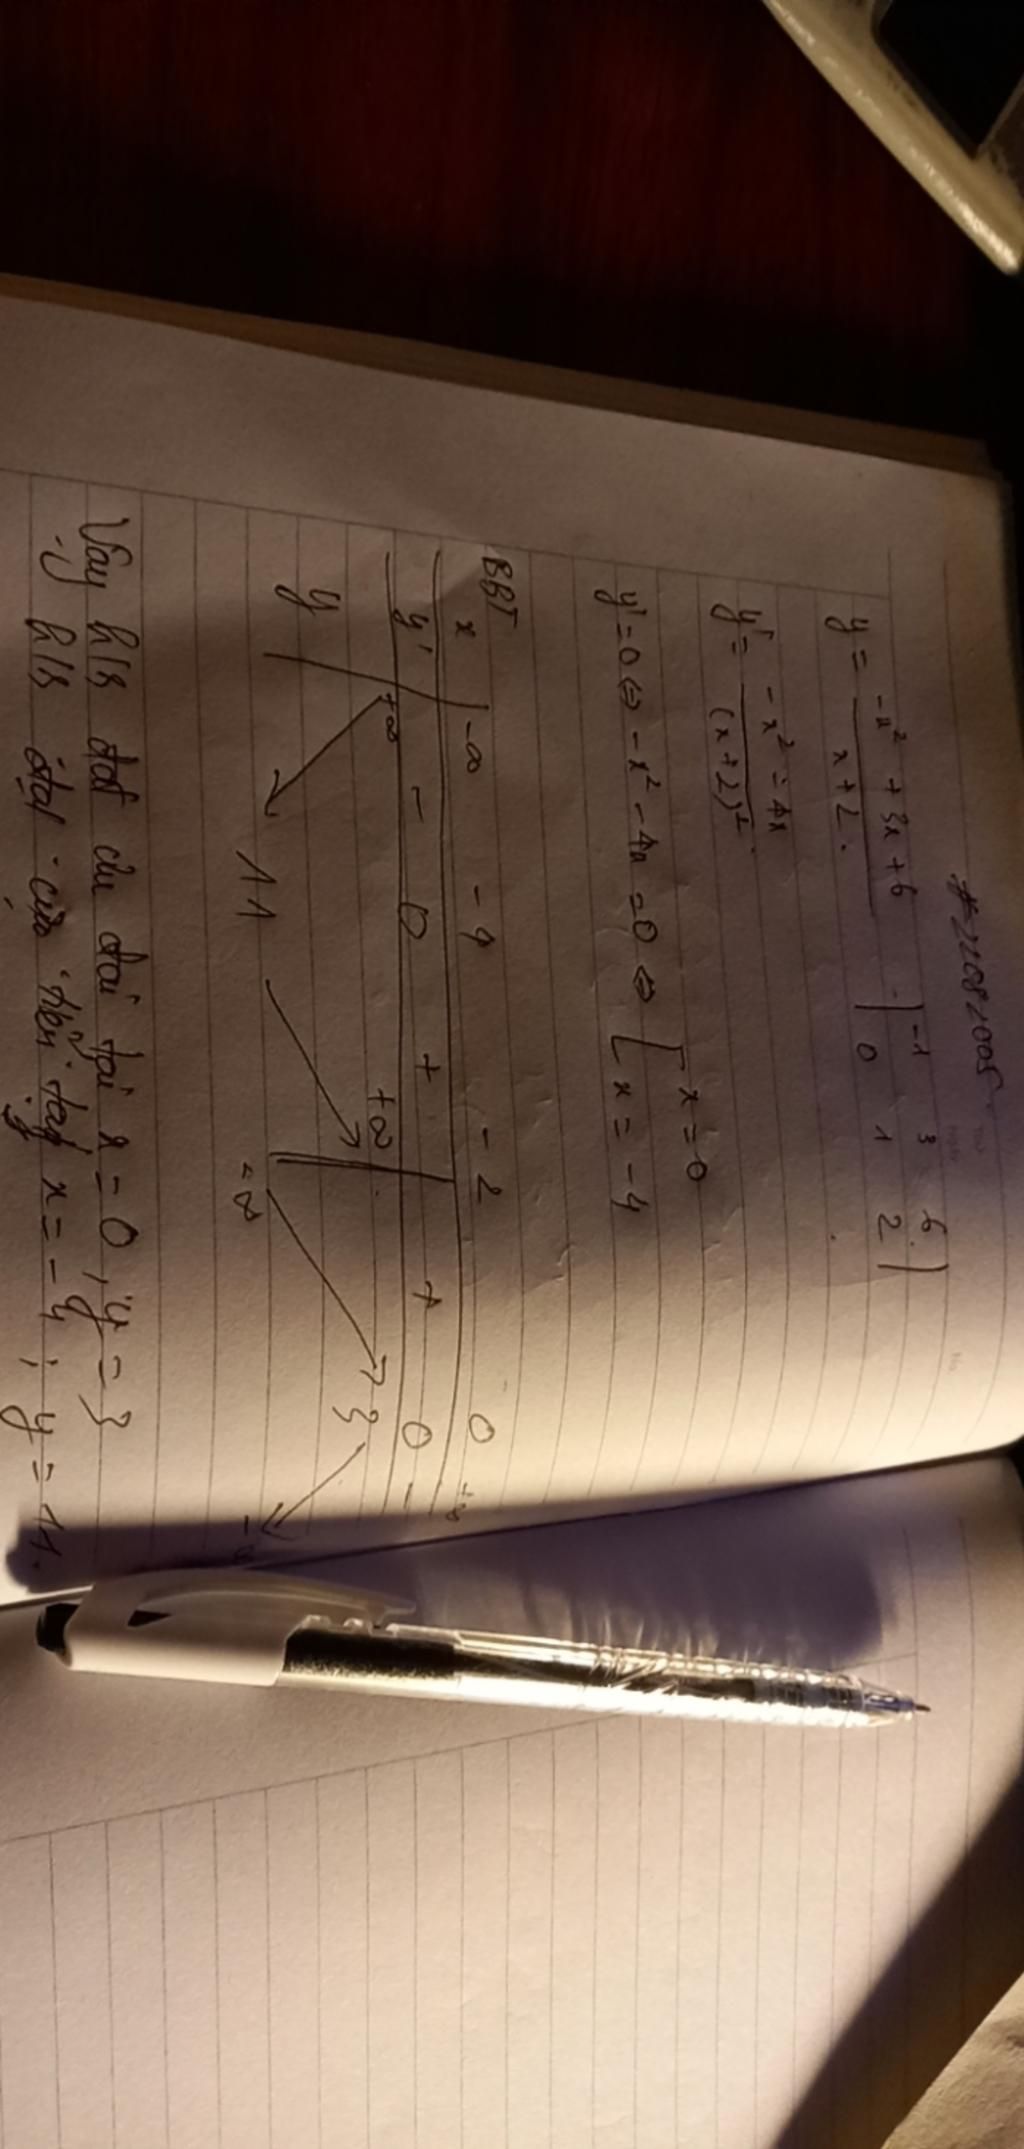 #22082005
y = -x² + 3x + 6 / x + 2 . | -1 3 6 |
0 1 2
y' = -x² - 4x / (x + 2)²
y' = 0 ⇔ -x² - 4x = 0 ⇔ [ x = 0
[ x = -4
BBT
x | -∞ -4 -2 0 +∞
y' - 0 + + 0 -
y +∞ 11 +∞ -∞ 3 -∞
Vậy h/s đạt cực đại tại x = 0, y = 3
h/s đạt cực tiểu tại x = -4 ; y = 11.